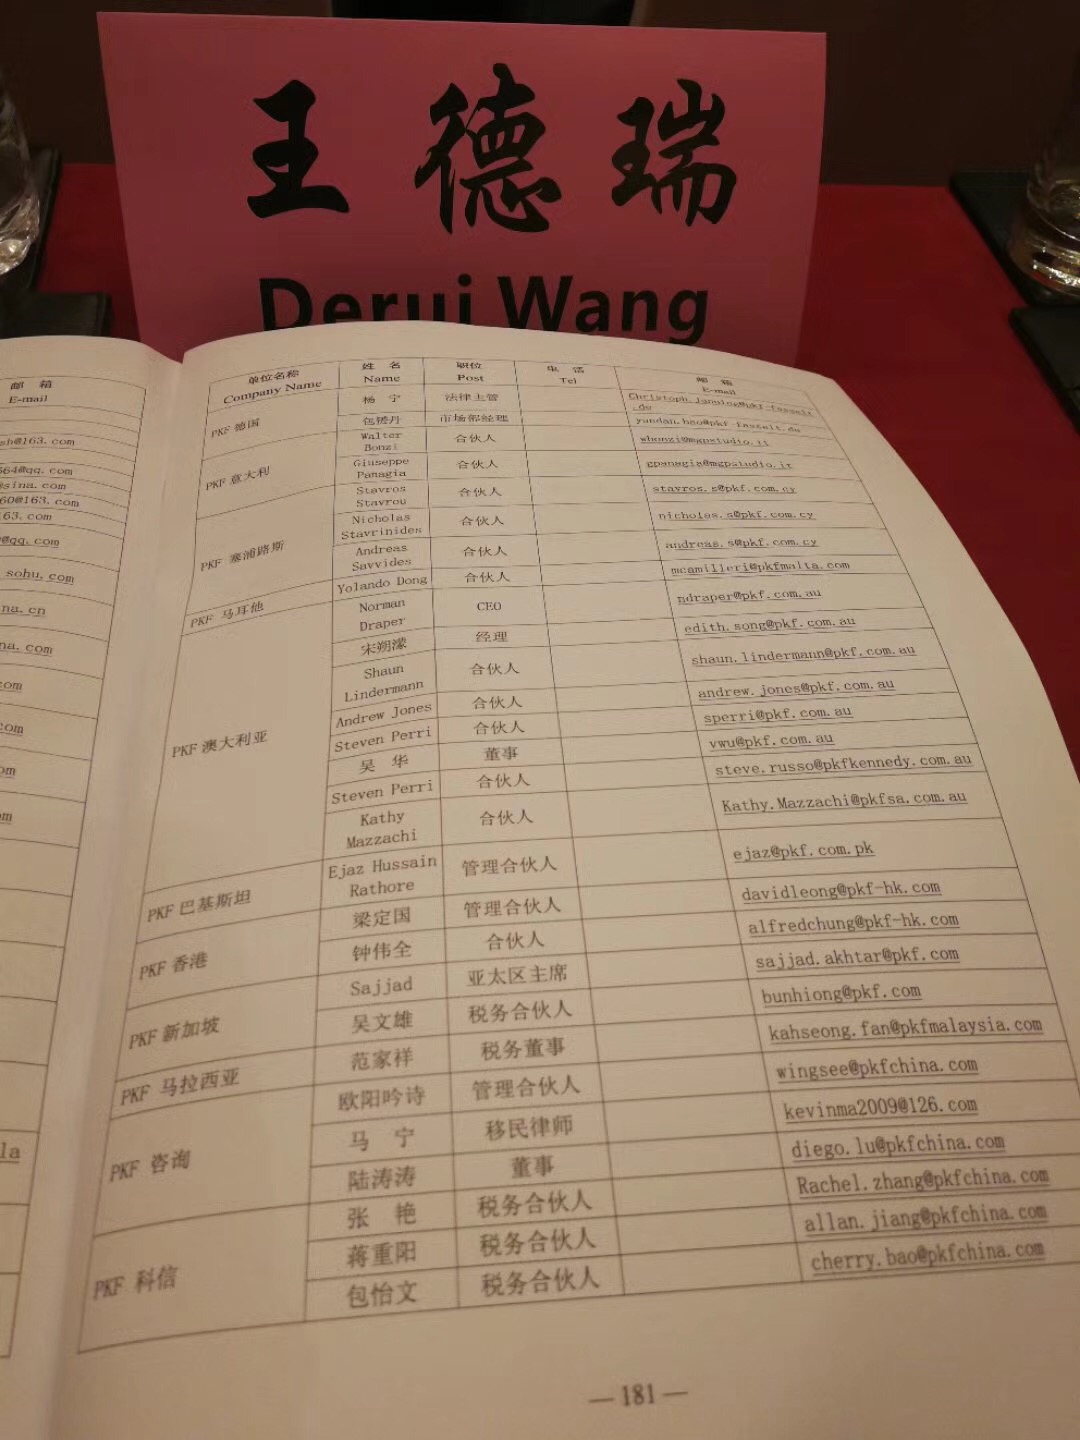 王德瑞
Derui Wang
邮 箱
E-mail
sh@163.com
564@qq.com
@sina.com
60@163.com
163.com
@qq.com
sohu.com
na.cn
na.com
com
com
om
m
la
单位名称 姓 名 职位 电 话 邮 箱
Company Name Name Post Tel E-mail
PKF 德国
杨 宁 法律主管 Christoph.janning@pkf-fasselt
.de
市场部经理 yundan.bao@pkf-fasselt.de
PKF 意大利
Walter
Bonzi 合伙人 wbonzi@mgpstudio.it
Giuseppe
Panagia 合伙人 gpanagia@mgpstudio.it
PKF 塞浦路斯
Stavros
Stavrou 合伙人 stavros.s@pkf.com.cy
Nicholas
Stavrinides 合伙人 nicholas.s@pkf.com.cy
Andreas
Savvides 合伙人 andreas.s@pkf.com.cy
PKF 马耳他
Yolando Dong 合伙人 mcamilleri@pkfmalta.com
PKF 澳大利亚
Norman
Draper CEO ndraper@pkf.com.au
宋朔濛 经理 edith.song@pkf.com.au
Shaun
Lindermann 合伙人 shaun.lindermann@pkf.com.au
Andrew Jones 合伙人 andrew.jones@pkf.com.au
Steven Perri 合伙人 sperri@pkf.com.au
吴 华 董事 vwu@pkf.com.au
Steven Perri 合伙人 steve.russo@pkfkennedy.com.au
Kathy
Mazzachi 合伙人 Kathy.Mazzachi@pkfsa.com.au
PKF 巴基斯坦
Ejaz Hussain
Rathore 管理合伙人 ejaz@pkf.com.pk
PKF 香港
梁定国 管理合伙人 davidleong@pkf-hk.com
钟伟全 合伙人 alfredchung@pkf-hk.com
PKF 新加坡
Sajjad 亚太区主席 sajjad.akhtar@pkf.com
吴文雄 税务合伙人 bunhiong@pkf.com
PKF 马拉西亚
范家祥 税务董事 kahseong.fan@pkfmalaysia.com
PKF 咨询
欧阳吟诗 管理合伙人 wingsee@pkfchina.com
马 宁 移民律师 kevinma2009@126.com
陆涛涛 董事 diego.lu@pkfchina.com
PKF 科信
张 艳 税务合伙人 Rachel.zhang@pkfchina.com
蒋重阳 税务合伙人 allan.jiang@pkfchina.com
包怡文 税务合伙人 cherry.bao@pkfchina.com
— 181 —